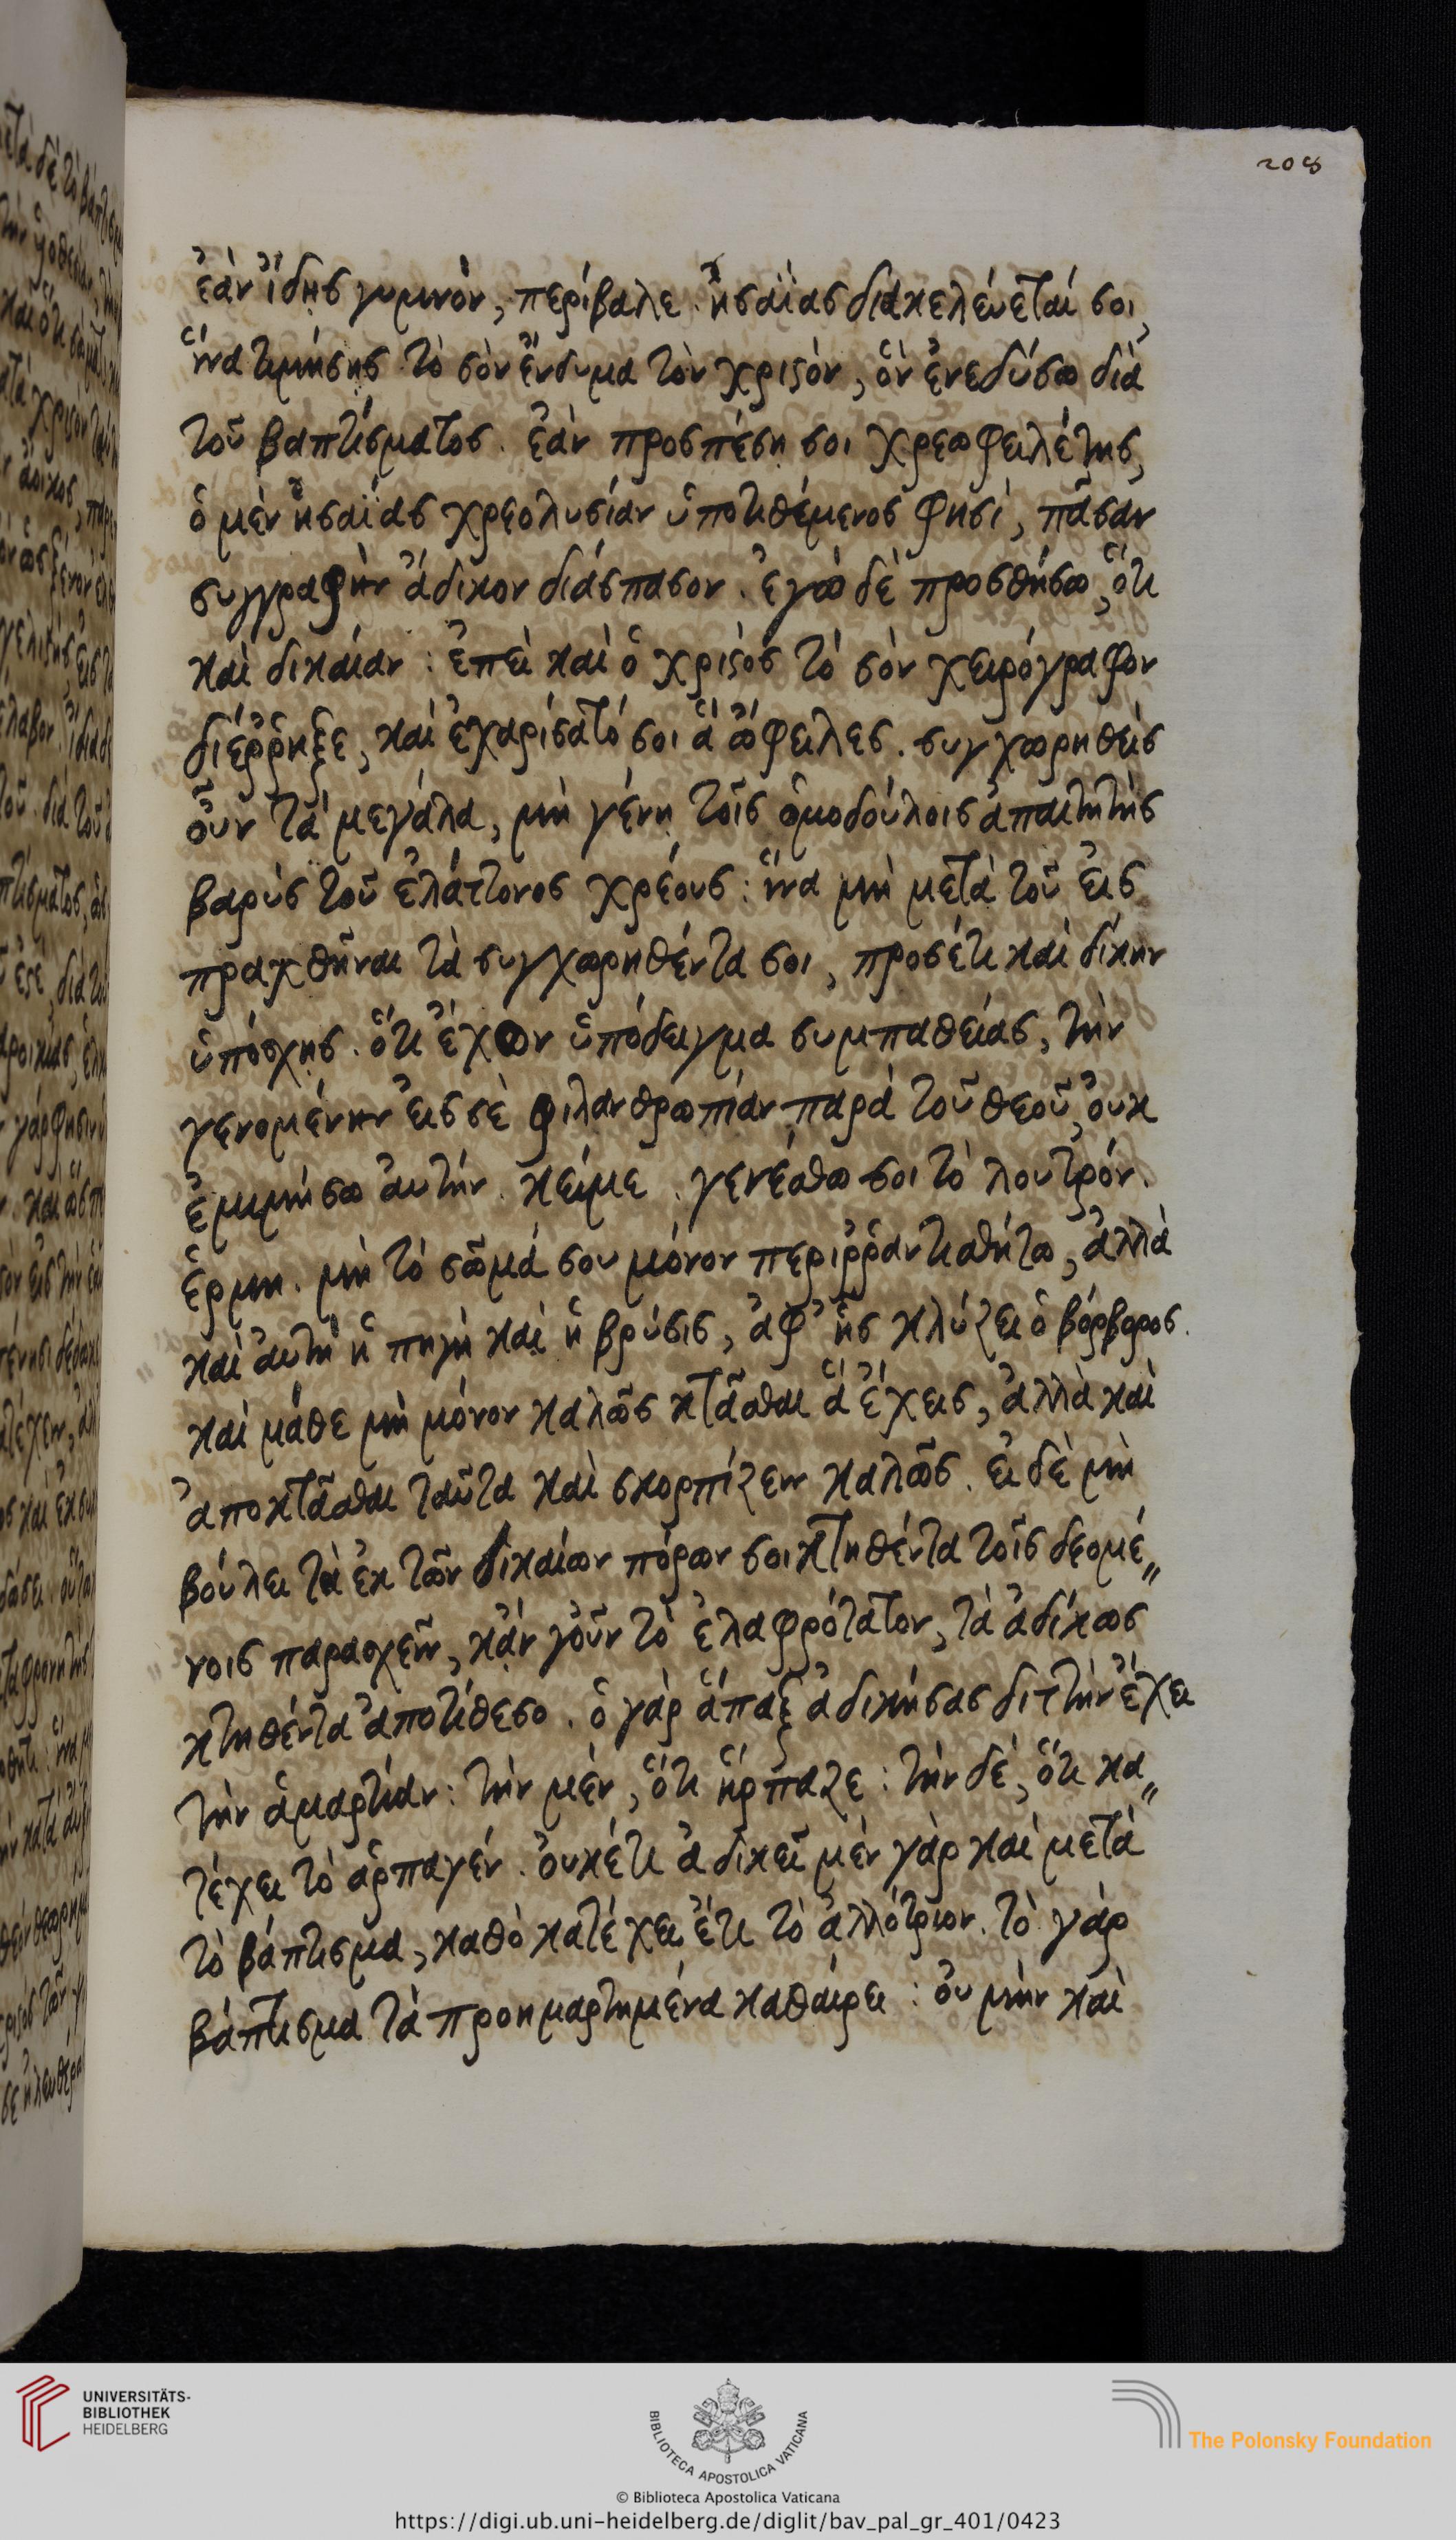 208
ἐὰν ἴδῃς γυμνὸν, περίβαλε. ἡσαΐας διακελέυεταί σοι,
ἵνα τιμήσῃς τὸ σὸν ἔνδυμα τὸν χριστόν, ὃν ἐνεδύσω διὰ
τοῦ βαπτίσματος. ἐὰν προσπέσῃ σοι χρεωφειλέτης,
ὁ μὲν ἡσαΐας χρεολυσίαν ὑποτιθέμενος φησὶ, πᾶσαν
συγγραφὴν ἄδικον διάσπασον. ἐγὼ δὲ προσθήσω, ὅτι
καὶ δικαίαν: ἐπεὶ καὶ ὁ χριστὸς τὸ σὸν χειρόγραφον
διέῤῥηξε, καὶ ἐχαρίσατό σοι ἃ ὤφειλες. συγχωρηθεὶς
οὖν τὰ μεγάλα, μὴ γένῃ τοῖς ὁμοδούλοις ἀπαιτητὴς
βαρὺς τοῦ ἐλάττονος χρέους: ἵνα μὴ μετὰ τοῦ εἰς
πραχθῆναι τὰ συγχωρηθέντα σοι, προσέτι καὶ δίκην
ὑπόσχῃς. ὅτι ἔχων ὑπόδειγμα συμπαθείας, τὴν
γενομένην εἰς σὲ φιλανθρωπίαν παρὰ τοῦ θεοῦ, οὐκ
ἐμιμήσω αὐτήν. κείμε. γενέσθω σοι τὸ λουτρόν.
ἑρμη. μὴ τὸ σῶμά σου μόνον περιῤῥαντισθήτω, ἀλλὰ
καὶ αὐτὴ ἡ πηγὴ καὶ ἡ βρύσις, ἀφ' ἧς κλύζει ὁ βόρβορος.
καὶ μάθε μὴ μόνον καλῶς κτᾶσθαι ἃ ἔχεις, ἀλλὰ καὶ
ἀποκτᾶσθαι ταῦτα καὶ σκορπίζειν καλῶς. εἰ δὲ μὴ
βούλει τὰ ἐκ τῶν δικαίων πόρων σοι κτηθέντα τοῖς δεομέ〃
νοις παρασχεῖν, κἂν γοῦν τὸ ἐλαφρότατον, τὰ ἀδίκως
κτηθέντα ἀποτίθεσο. ὁ γὰρ ἅπαξ ἀδικήσας διττὴν ἔχει
τὴν ἁμαρτίαν: τὴν μὲν, ὅτι ἥρπαζε: τὴν δὲ, ὅτι κα〃
τέχει τὸ ἁρπαγέν. οὐκέτι ἀδικεῖ μὲν γὰρ καὶ μετὰ
τὸ βάπτισμα, καθὸ κατέχει ἔτι τὸ ἀλλότριον. τὸ γὰρ
βάπτισμα τὰ προημαρτημένα καθαίρει: οὐ μὴν καὶ
UNIVERSITÄTS-
BIBLIOTHEK
HEIDELBERG
BIBLIOTECA APOSTOLICA VATICANA
The Polonsky Foundation
© Biblioteca Apostolica Vaticana
https://digi.ub.uni-heidelberg.de/diglit/bav_pal_gr_401/0423